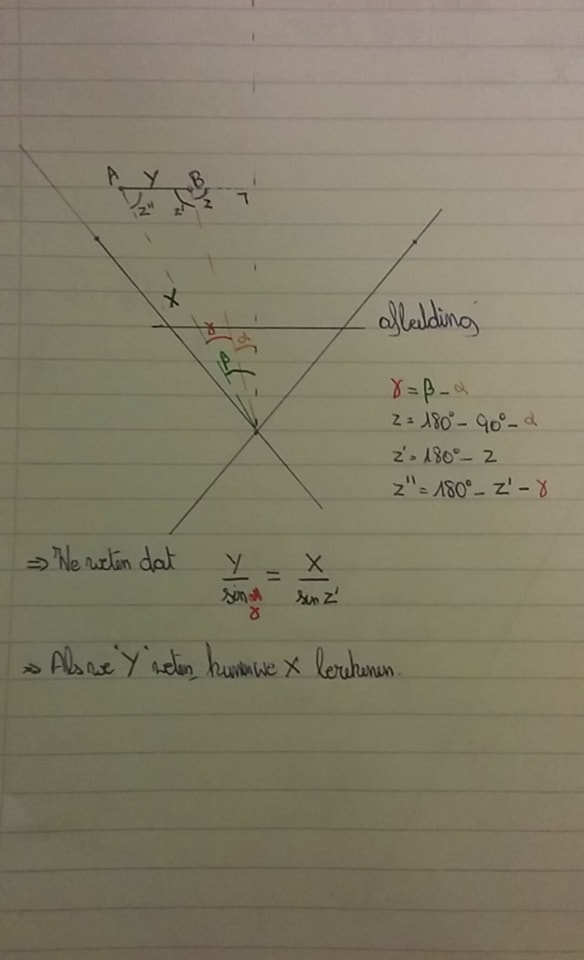 A Y B
z'' z' z
X
γ α
afbeelding
β
γ = β - α
z = 180° - 90° - α
z' = 180° - z
z'' = 180° - z' - γ
⇒ We weten dat Y/sin γ = X/sin z'
⇒ Als we "Y" weten kunnen we X berekenen.